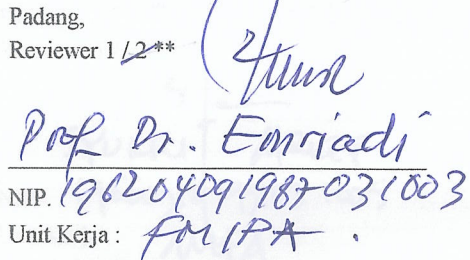 Padang,
Reviewer 1 / 2 **
Prof Dr. Emriadi
NIP. 196204091987031003
Unit Kerja : FMIPA .